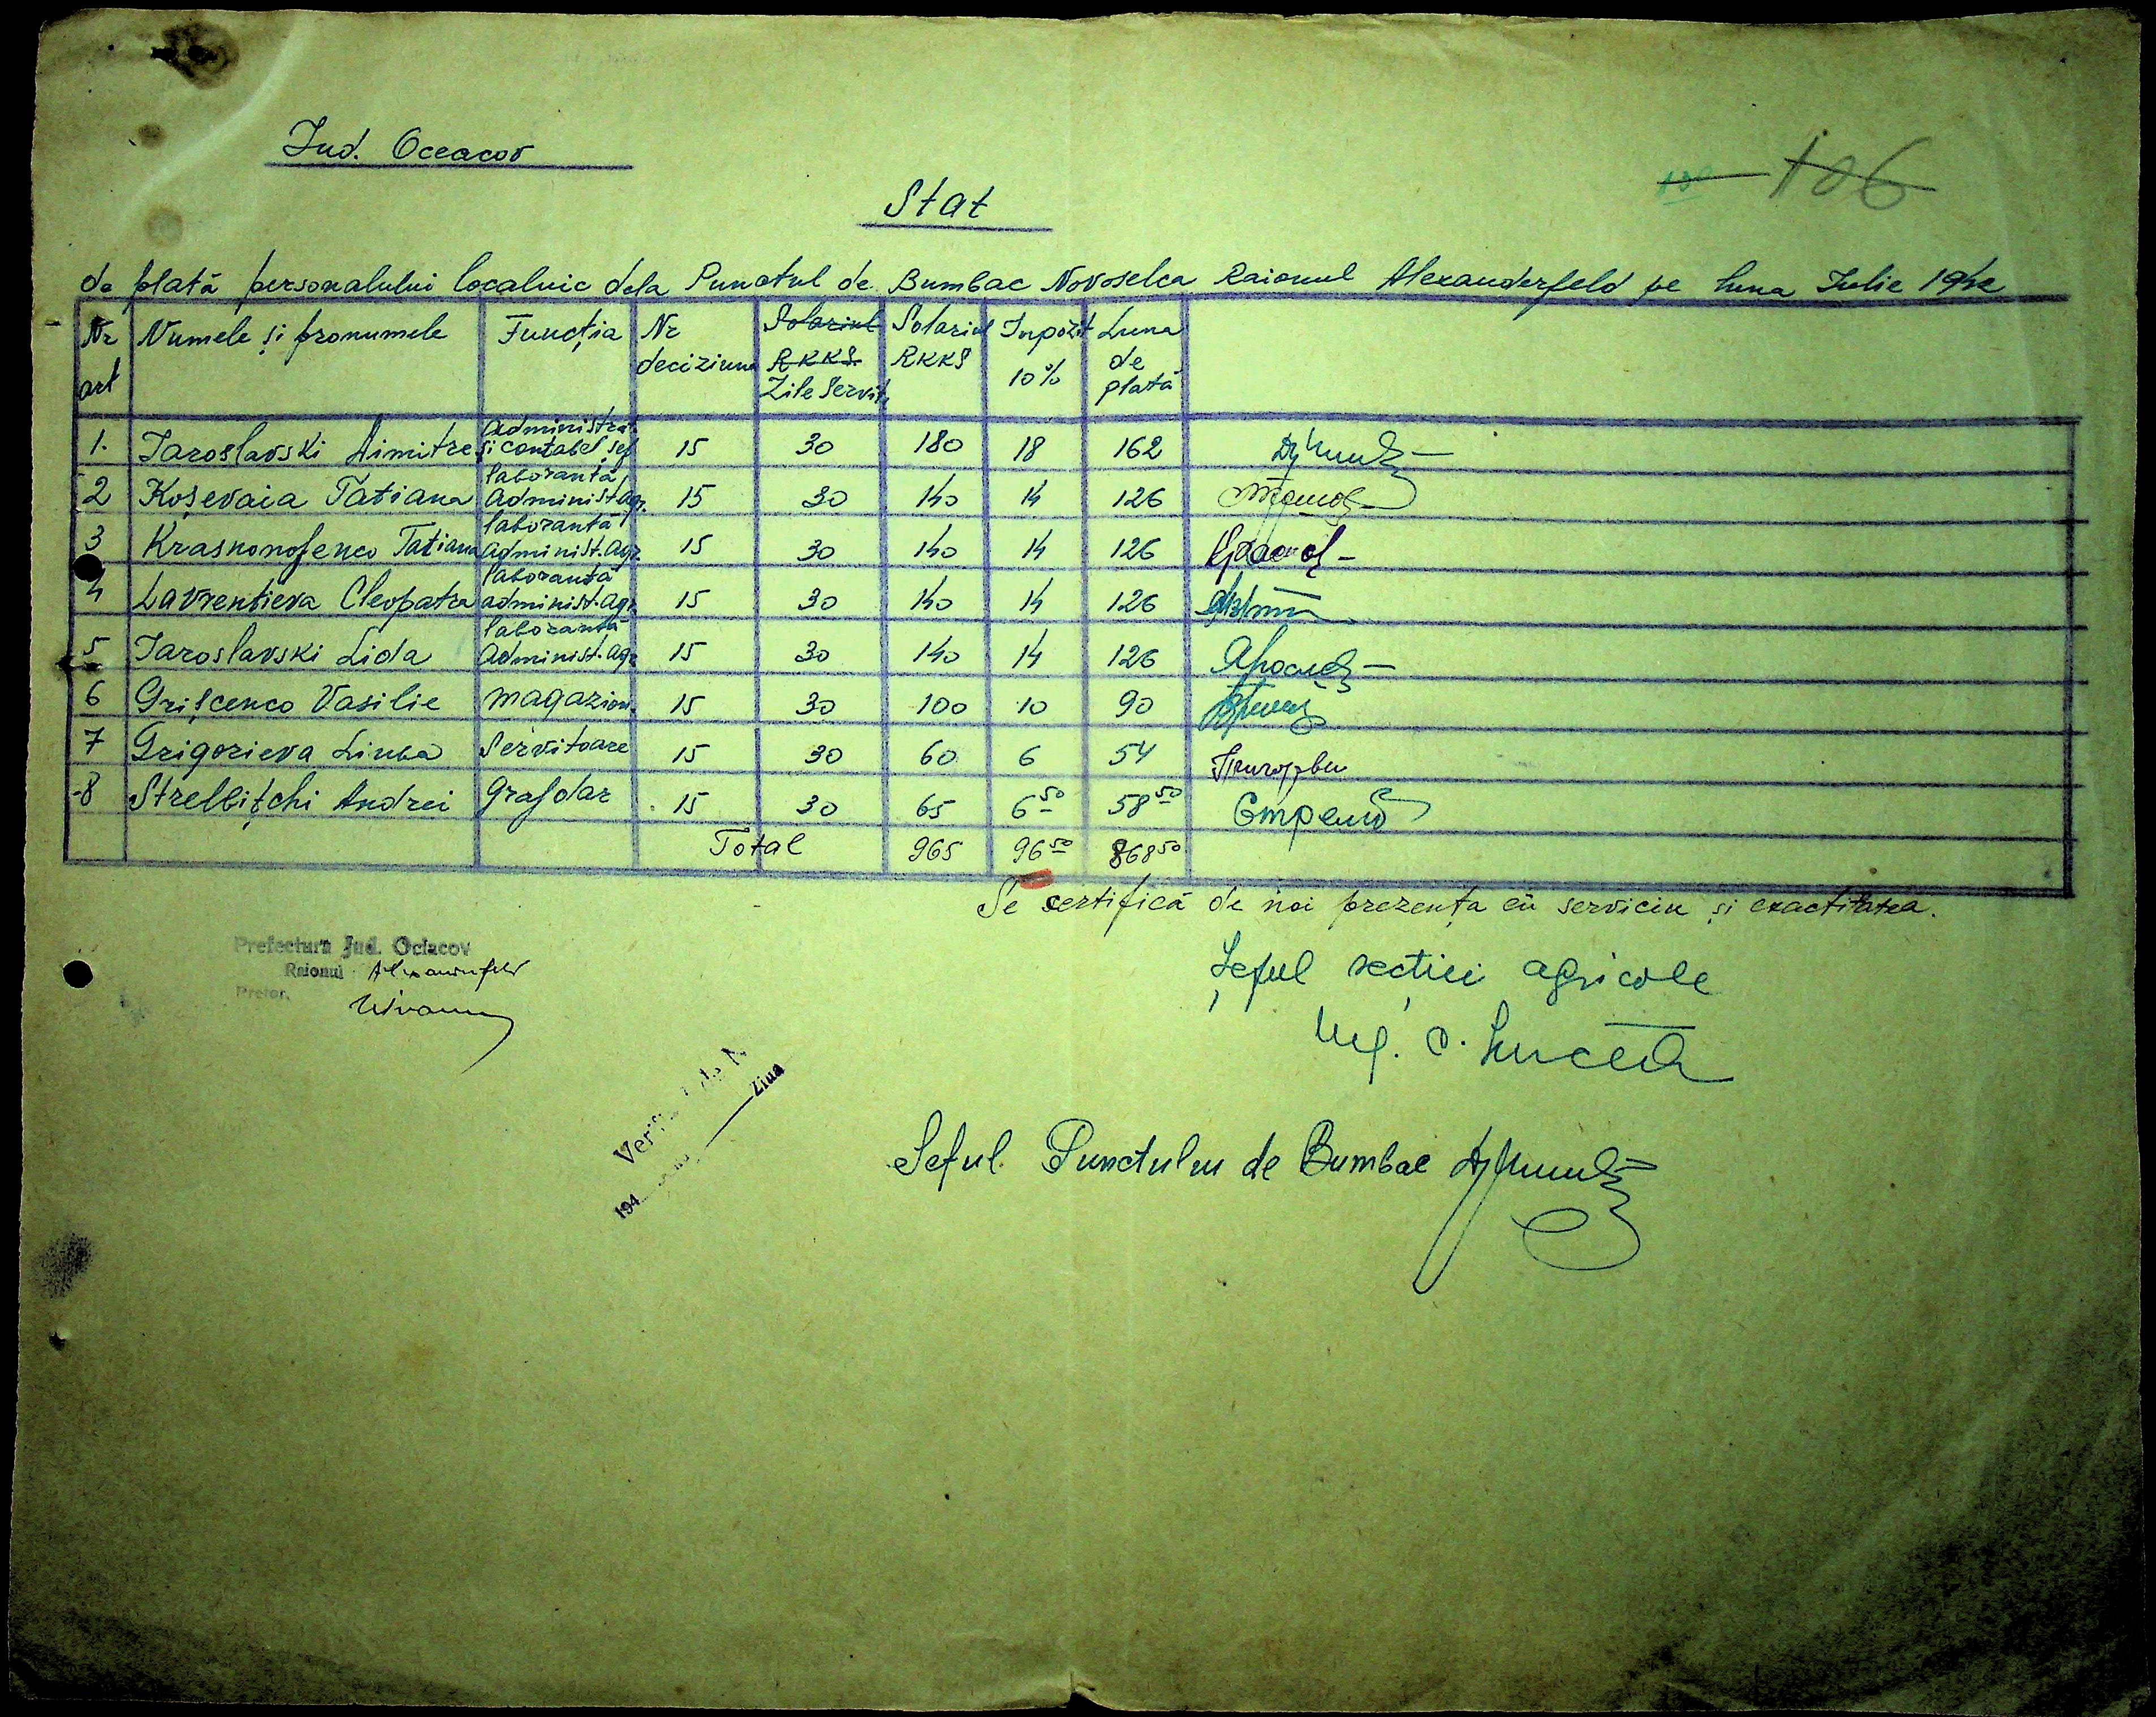 Jud. Oceacov
106
Stat
de plată personalului localnic dela Punctul de Bumbac Novoselca Raionul Alexanderfeld pe luna Iulie 1942
Nr art Numele și pronumele Funcția Nr deciziuna Solariul RKKS Zile Servite Solariul RKKS Inpozit 10% Luna de plată
1. Iaroslavski Dimitre Administrat. și contabel șef 15 30 180 18 162
2 Koșevaia Tatiana laborantă administ. agr. 15 30 140 14 126
3 Krasnonosenco Tatiana laborantă administ. agr. 15 30 140 14 126
4 Lavrentieva Cleopatra laborantă administ. agr. 15 30 140 14 126
5 Iaroslavski Lida laborantă administ. agr. 15 30 140 14 126
6 Grișcenco Vasilie magazion. 15 30 100 10 90
7 Grigorieva Liuba Servitoare 15 30 60 6 54
8 Strelbițchi Andrei grajdar 15 30 65 6 50 58 50
Total 965 96 50 868 50
Se certifică de noi prezența în serviciu și exactitatea.
Prefectura Jud. Oceacov
Raionul Alexanderfeld
Pretor,
Șeful secției agricole
Ing. C.
194 Ziua
Seful Punctului de Bumbac